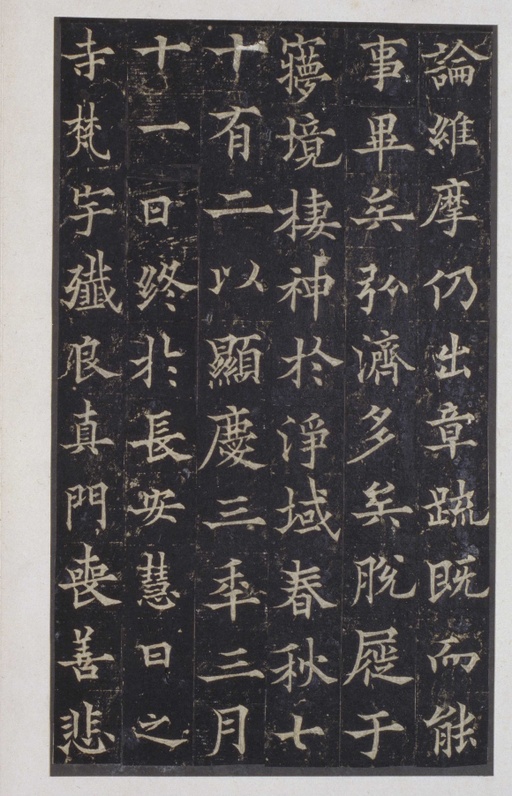 論維摩仍出章疏既而能
事畢矣弘濟多矣脫屣于
㝱境棲神於淨域春秋七
十有二以顯慶三年三月
十一日終於長安慧日之
寺梵宇殲良真門喪善悲